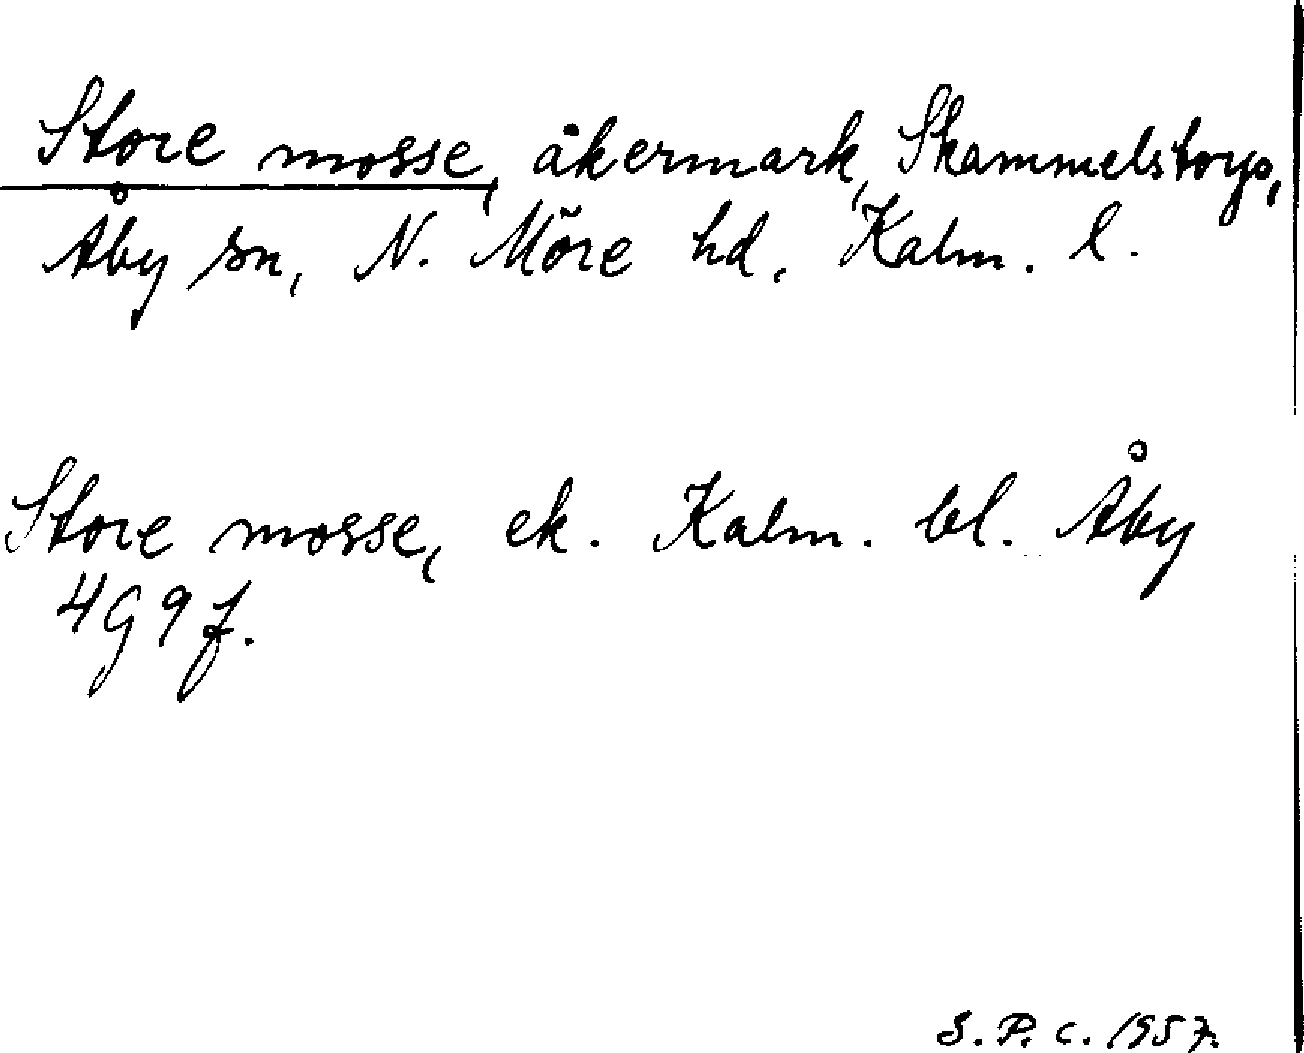 Store mosse, åkermark, Skammelstorp,
Åby sn, N. Möre hd, Kalm. l.
Store mosse, ek. Kalm. bl. Åby
4G9f.
S.P.C. 1957.